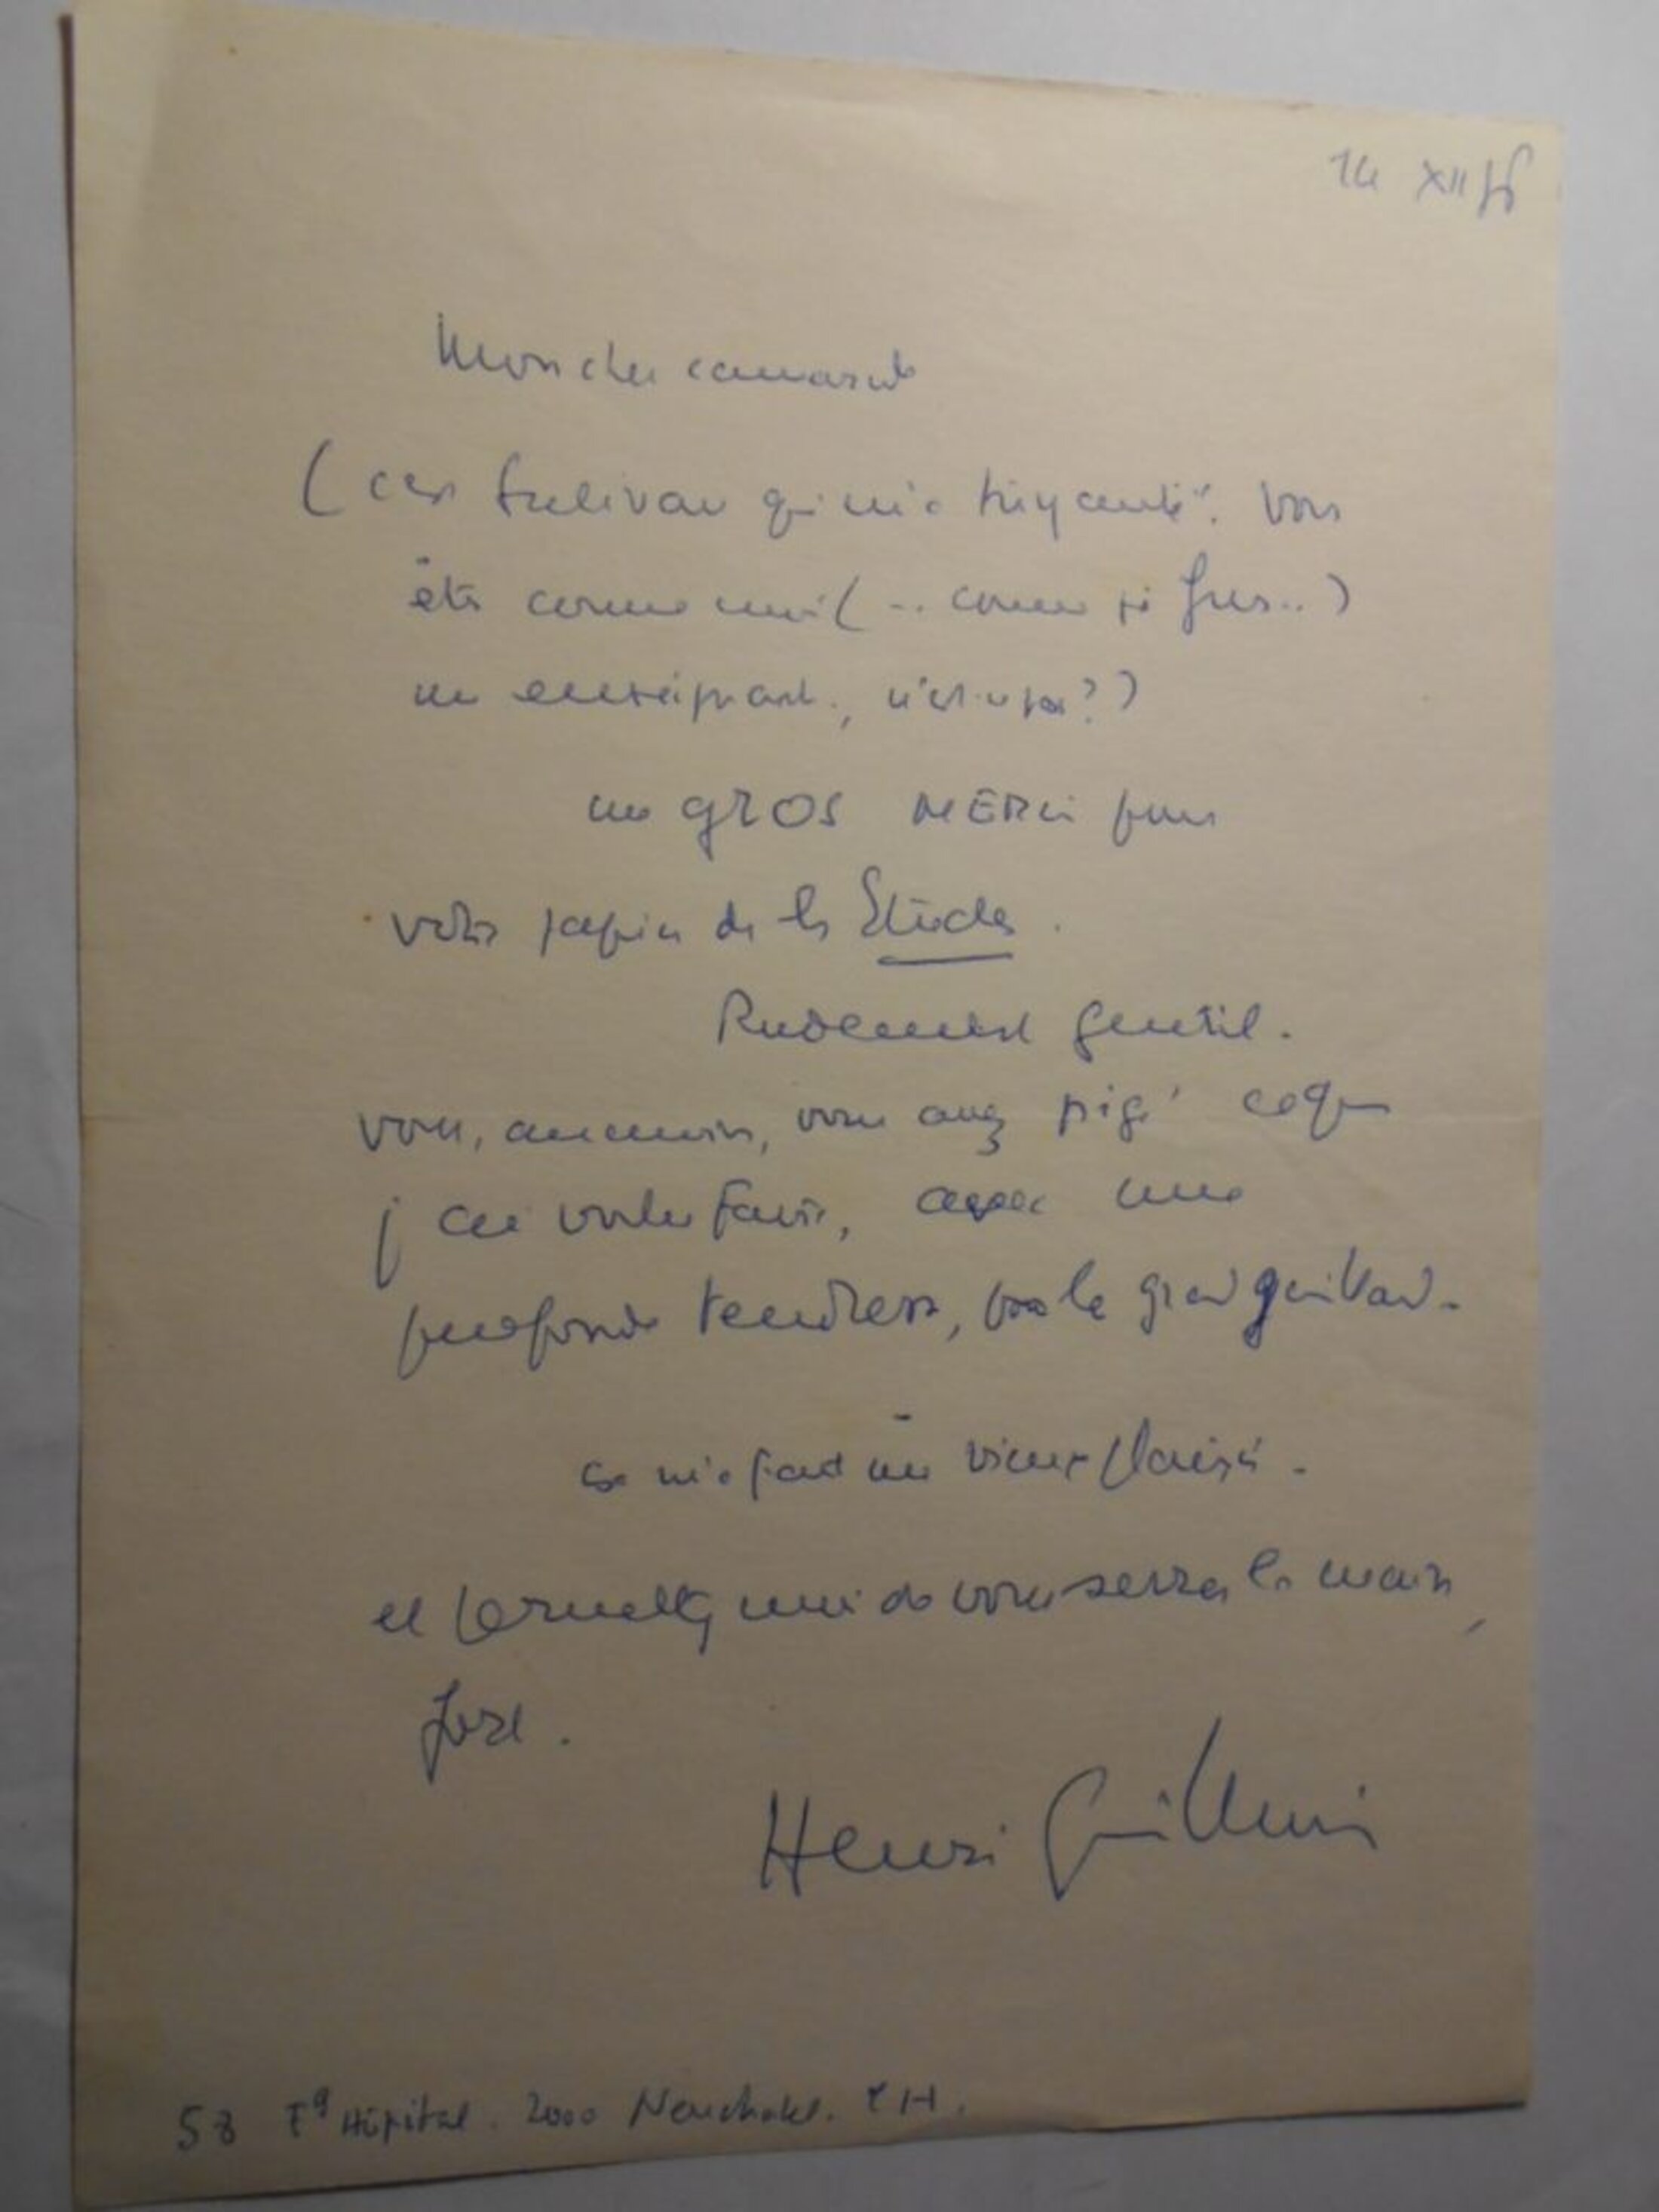 14 XII
Mon cher camarade
(c'est Sulivan qui m'a. Vous
êtes comme moi (.. comme je fus..)
un enseignant, n'est-ce pas?)
un GROS MERCI pour
votre papier des Études.
Rudement gentil.
Vous, au moins, vous avez pigé ce que
j'ai voulu faire, avec une
profonde tendresse, pour le grand gaillard.
Ça m'a fait un vieux plaisir.
et permettez moi de vous serrer la main,
fort.
Henri Guillemin
58 Fg Hôpital. 2000 Neuchatel. CH.